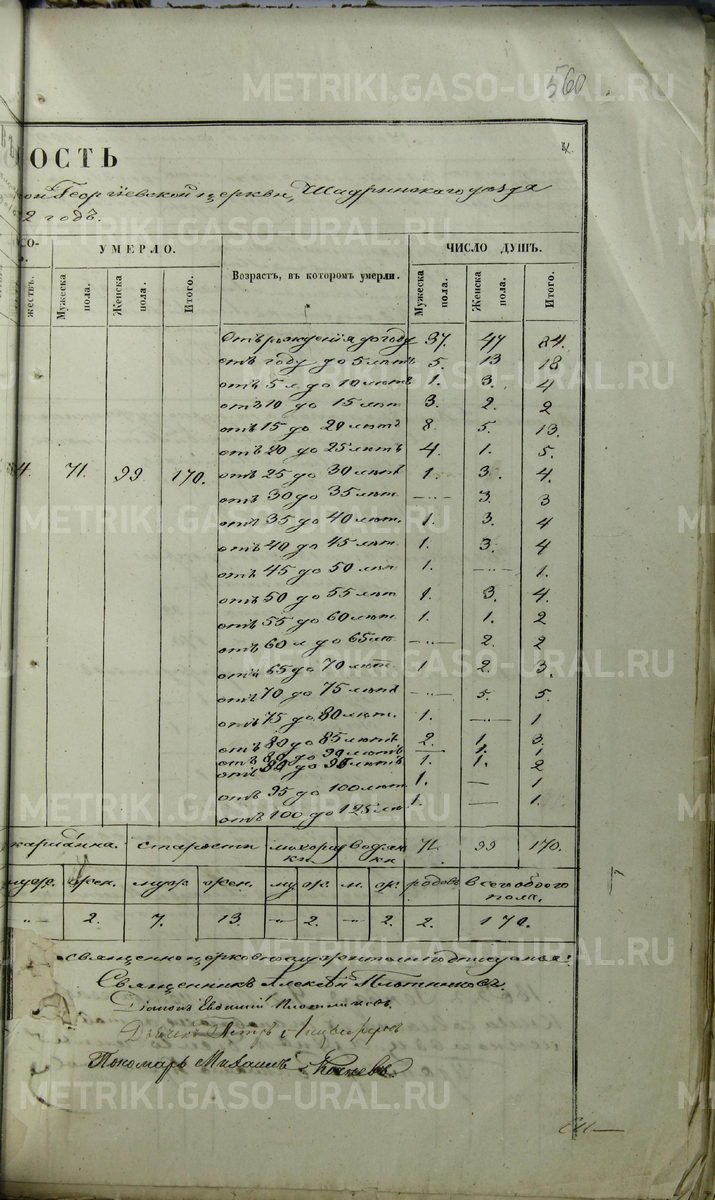 560
METRIKI.GASO-URAL.RU
ОСТЬ
Георгіевской церкви, Шадринского уѣзда
2 годъ.
УМЕРЛО. Возрастъ, въ которомъ умерли. ЧИСЛО ДУШЪ.
жествъ. Мужеска пола. Женска пола. Итого. Мужеска пола. Женска пола. Итого.
Отъ рожденія до году 37. 47 84.
отъ году до 5 лѣтъ 5. 13 18
отъ 5 л до 10 лѣтъ 1. 3. 4
отъ 10 до 15 лѣт 3. 2. 2
отъ 15 до 20 лѣтъ 8 5. 13.
отъ 20 до 25 лѣтъ 4 1. 5.
4. 71. 99 170. отъ 25 до 30 лѣтъ 1. 3. 4.
отъ 30 до 35 лѣт. 3. 3
отъ 35 до 40 лѣт. 1. 3. 4
отъ 40 до 45 лѣт. 1. 3. 4
отъ 45 до 50 лѣт 1. 1.
отъ 50 до 55 лѣт 1. 3. 4.
отъ 55 до 60 лѣт. 1. 1. 2
отъ 60 л до 65 лѣ. 2. 2
отъ 65 до 70 лѣт. 1 2. 3.
отъ 70 до 75 лѣтъ 5. 5.
отъ 75 до 80 лѣт. 1. 1
отъ 80 до 85 лѣтъ 2. 1. 3.
1. 1
1. 1. 2
отъ 95 до 100 лѣт 1. — 1
отъ 100 до 125 лѣ 1. — 1.
старости 71. 99 170.
муж. жен. муж. жен. му. ж. м. ж. родовъ всего обоего пола.
2. 7. 13 2. 2. 2. 170.
Священникъ Алексѣй Плотниковъ.
Діаконъ Евѳимій Плотниковъ.
Дьячекъ Петръ
Пономарь Михаилъ